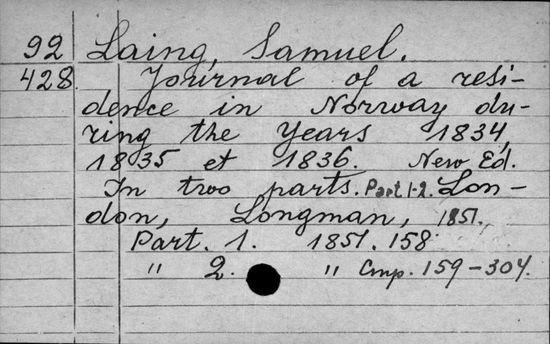 92 Laing, Samuel.
428 Journal of a resi-
dence in Norway du-
ring the Years 1834,
1835 et 1836. New Ed.
In two parts. Part 1-2. Lon-
don, Longman, 1851.
Part. 1. 1851. 158
" 2. " Стр. 159-304.